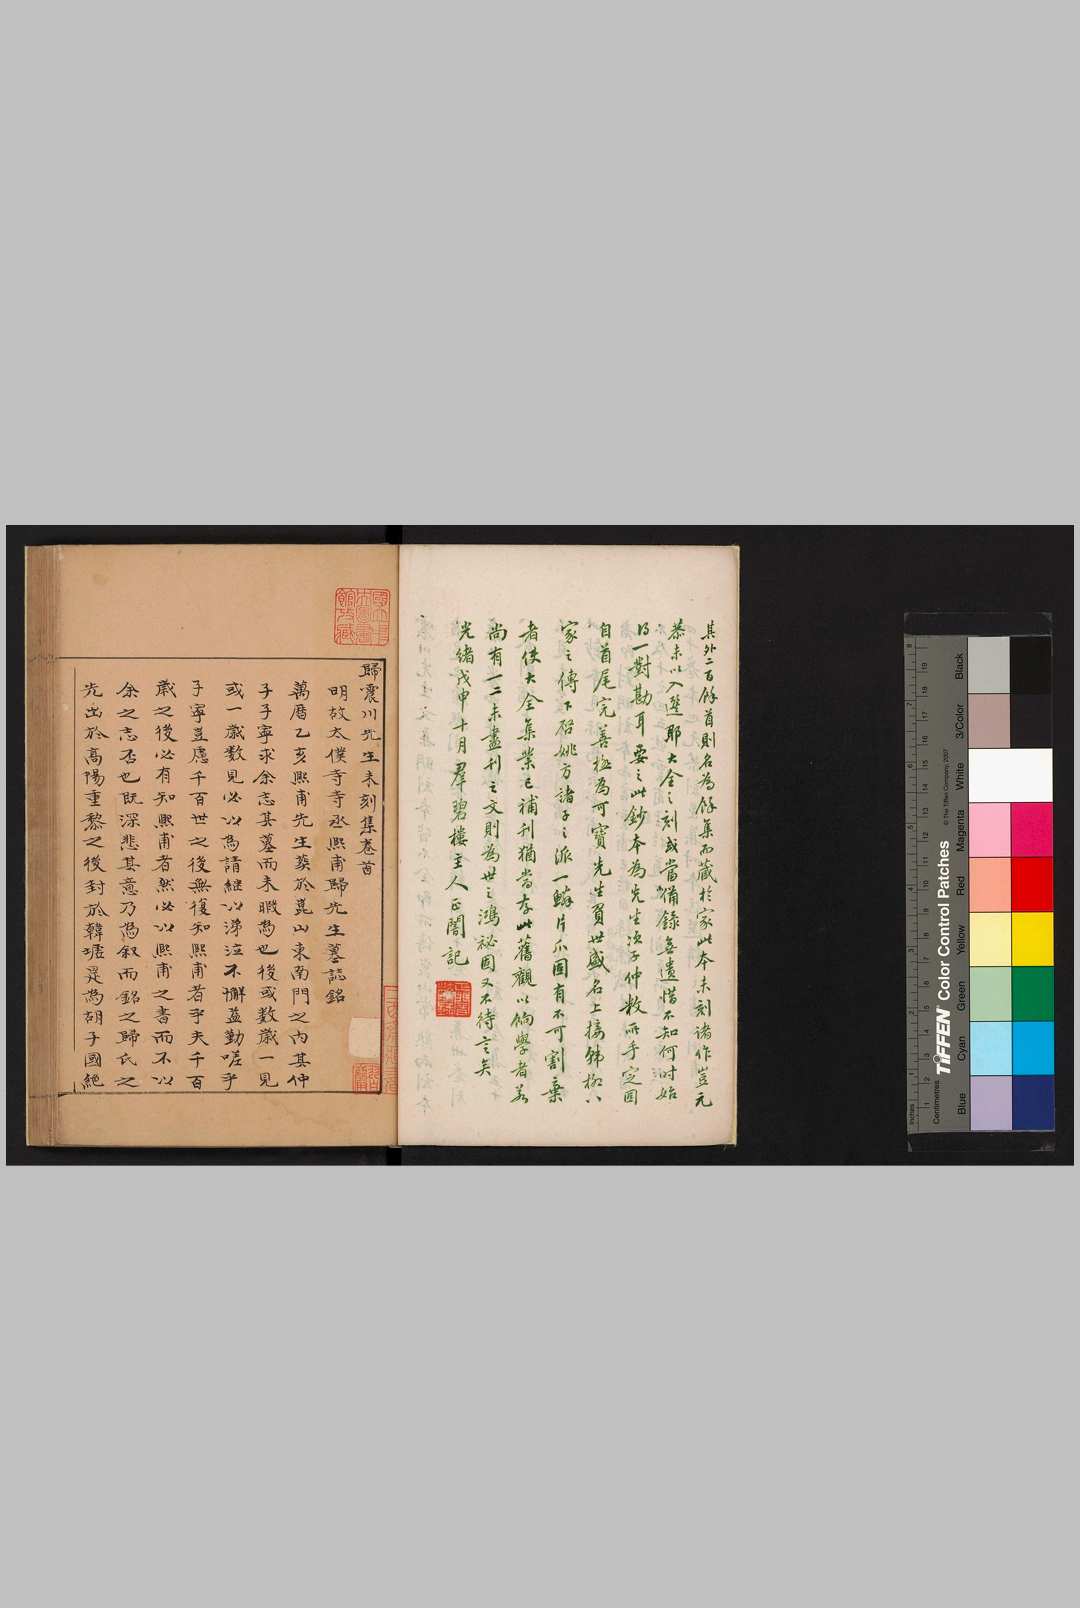 其外二百餘首則名為餘集而藏於家此本未刻諸作豈元
恭未以入選耶大全之刻或當備錄無遺惜不知何时始
得一對勘耳要之此鈔本為先生次子仲敉所手定固
自首尾完善極為可寶先生負世盛名上接韓栁八
家之傳下啓姚方諸子之派一鱗片爪固有不可割棄
者使大全集業已補刊猶當存此舊觀以餉學者若
尚有一二未盡刊之文則為世之鴻祕固又不待言矣
光緒戊申十月羣碧樓主人正闇記
歸震川先生未刻集卷首
明故太僕寺寺丞熙甫歸先生墓誌銘
萬曆乙亥熙甫先生葬於崑山東南門之內其仲
子子寧求余志其墓而未暇為也後或數歲一見
或一歲数見必以為請繼以涕泣不懈益勤嗟乎
子寧豈慮千百世之後無復知熙甫者乎夫千百
歲之後必有知熙甫者然必以熙甫之書而不以
余之志否也既深悲其意乃為叙而銘之歸氏之
先出於高陽重黎之後封於韓墟是為胡子國絕
Inches
Centimetres
TIFFEN Color Control Patches
© The Tiffen Company, 2007
Blue
Cyan
Green
Yellow
Red
Magenta
White
3/Color
Black